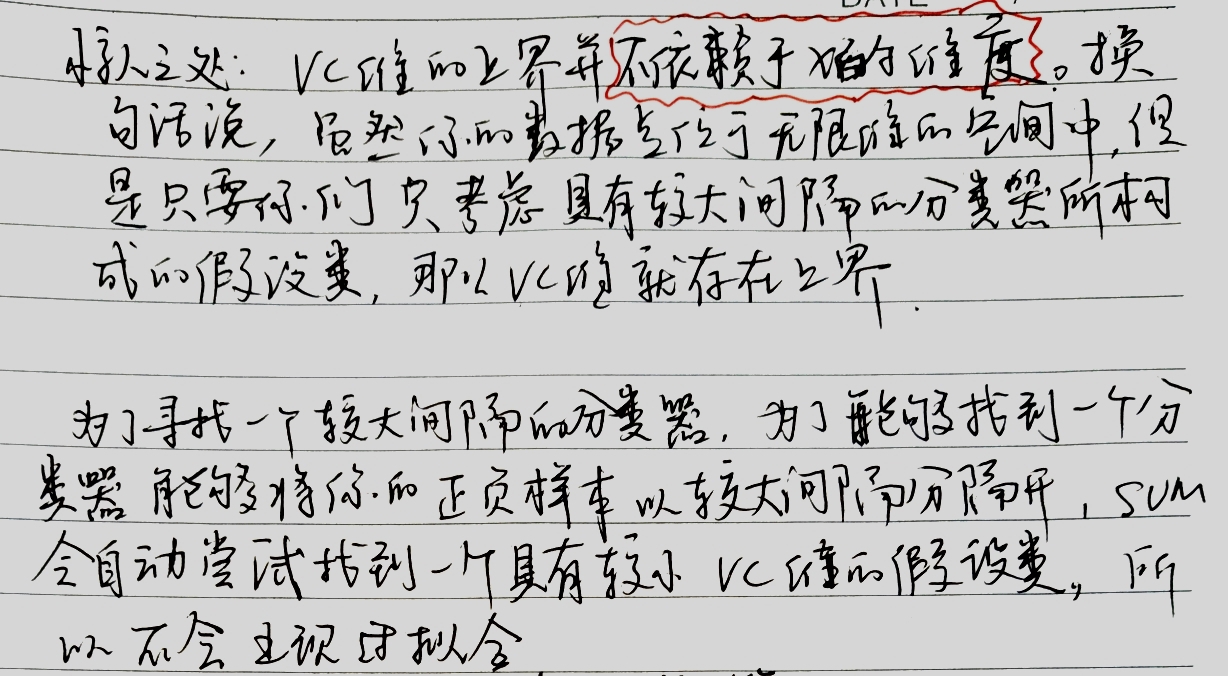 DATE
惊人之处: VC维的上界并不依赖于x的维度。换
句话说, 虽然你的数据点位于无限维的空间中,但
是只要你们只考虑具有较大间隔的分类器所构
成的假设类, 那么VC维就存在上界.
为了寻找一个较大间隔的分类器, 为了能够找到一个分
类器能够将你的正负样本以较大间隔分隔开, SVM
会自动尝试找到一个具有较小VC维的假设类, 所
以不会出现过拟合